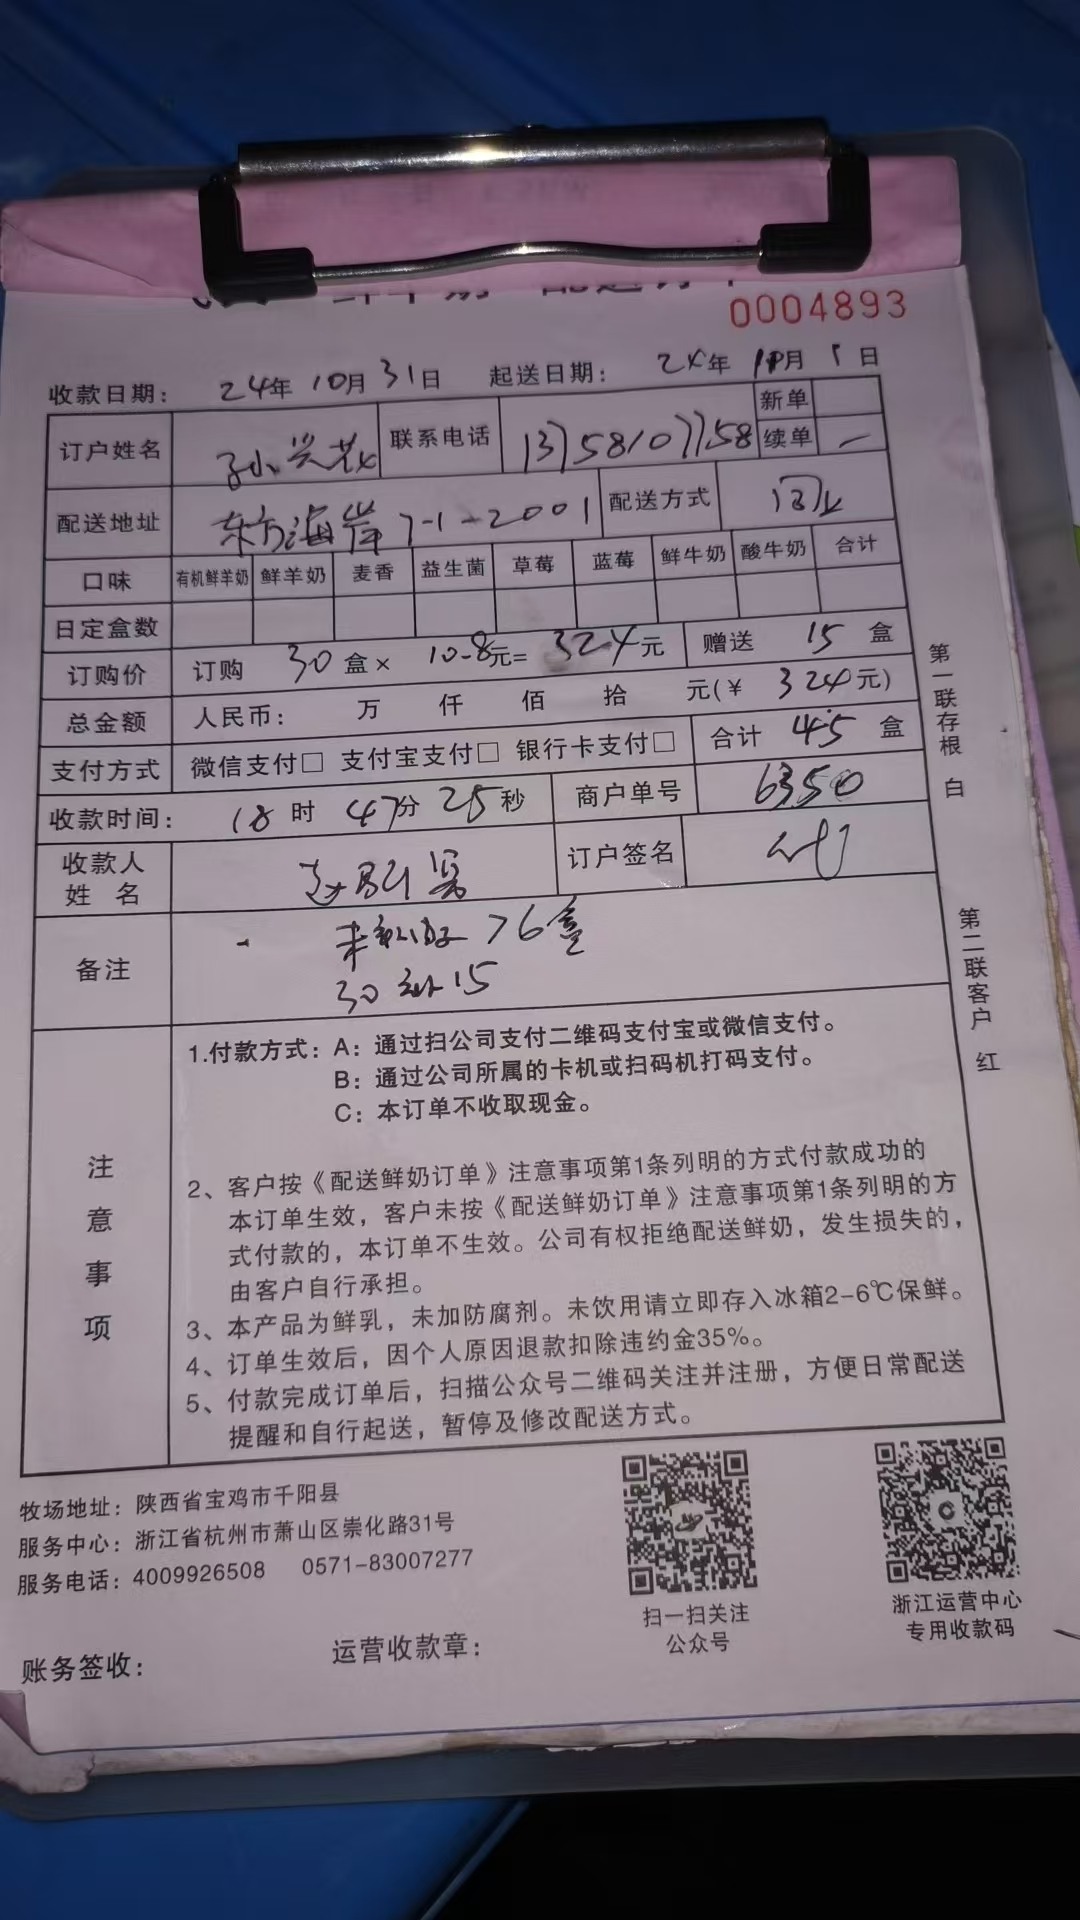 0004893
收款日期: 24年 10月 31日 起送日期: 24年 11月 1日
订户姓名 孙兴花 联系电话 13758107758 新单
续单
配送地址 东方海岸7-1-2001 配送方式
口味 有机鲜羊奶 鲜羊奶 麦香 益生菌 草莓 蓝莓 鲜牛奶 酸牛奶 合计
日定盒数
订购价 订购 30 盒× 10.8元= 324元 赠送 15 盒
总金额 人民币: 万 仟 佰 拾 元(¥ 324元)
支付方式 微信支付□ 支付宝支付□ 银行卡支付□ 合计 45 盒
收款时间: 18 时 47分 25秒 商户单号 6350
收款人
姓 名
订户签名 代
备注 76盒
30 送15
注意事项
1.付款方式: A: 通过扫公司支付二维码支付宝或微信支付。
B: 通过公司所属的卡机或扫码机打码支付。
C: 本订单不收取现金。
2、客户按《配送鲜奶订单》注意事项第1条列明的方式付款成功的
本订单生效，客户未按《配送鲜奶订单》注意事项第1条列明的方
式付款的，本订单不生效。公司有权拒绝配送鲜奶，发生损失的，
由客户自行承担。
3、本产品为鲜乳，未加防腐剂。未饮用请立即存入冰箱2-6℃保鲜。
4、订单生效后，因个人原因退款扣除违约金35%。
5、付款完成订单后，扫描公众号二维码关注并注册，方便日常配送
提醒和自行起送，暂停及修改配送方式。
第一联存根 白
第二联客户 红
牧场地址: 陕西省宝鸡市千阳县
服务中心: 浙江省杭州市萧山区崇化路31号
服务电话: 4009926508 0571-83007277
扫一扫关注
公众号
浙江运营中心
专用收款码
账务签收: 运营收款章: